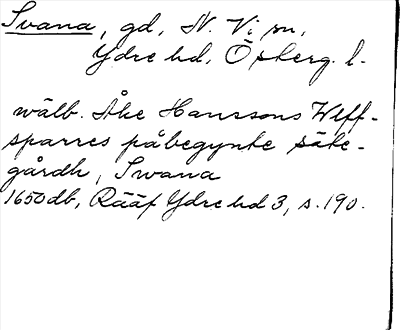 Svana, gd, N. Vi sn,
Ydre hd, Österg. l.
wälb. Åke Hanssons Wlff-
sparres påbegynte säte-
gårdh, Swana
1650 db, Rääf Ydre hd 3, s. 190.